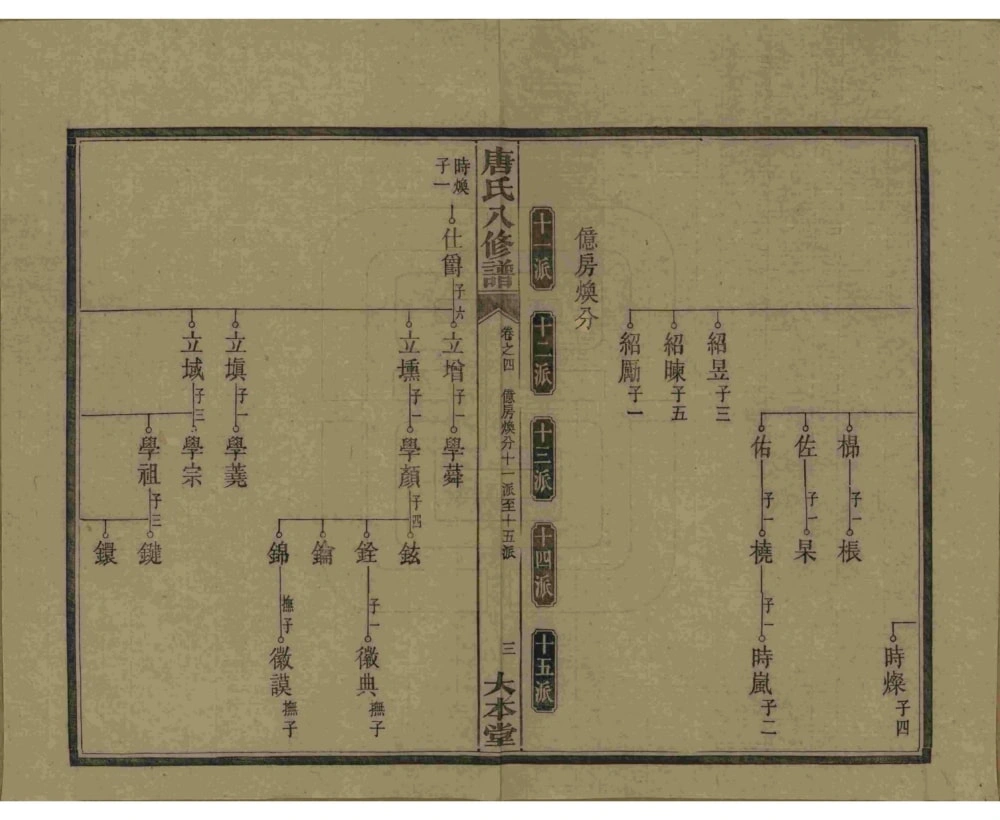 紹昱 子三
紹暕 子五
紹勵 子一
佐 子一 杲
佑 子一 橈 子一 時嵐 子二
時燦 子四
億房煥分
十一派
十二派
十三派
十四派
十五派
唐氏八修譜
卷之四 億房煥分十一派至十五派
三
大本堂
時煥 子一
仕爵 子六
立增 子一 學舜
立壎 子一 學顏 子四 鉉
銓 子一 徽典 撫子
錦 撫子 徽謨 撫子
立塡 子一 學羲
立域 子三 學宗
學祖 子三 鍵
鐶